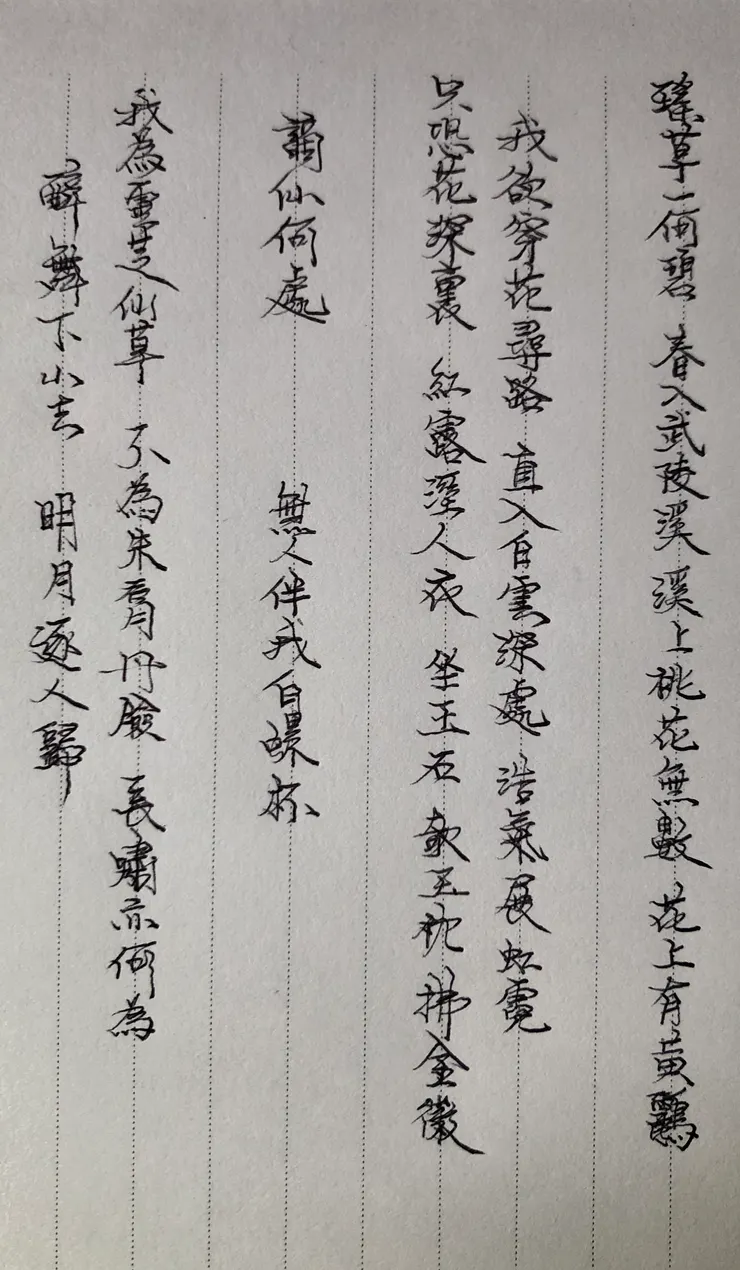 瑤草一何碧 春入武陵溪 溪上桃花無數 花上有黃鸝
我欲穿花尋路 直入白雲深處 浩氣展虹霓
只恐花深裏 紅露溼人衣 坐玉石 欹玉枕 拂金徽
謫仙何處 無人伴我白螺杯
我為靈芝仙草 不為朱脣丹臉 長嘯亦何為
醉舞下山去 明月逐人歸